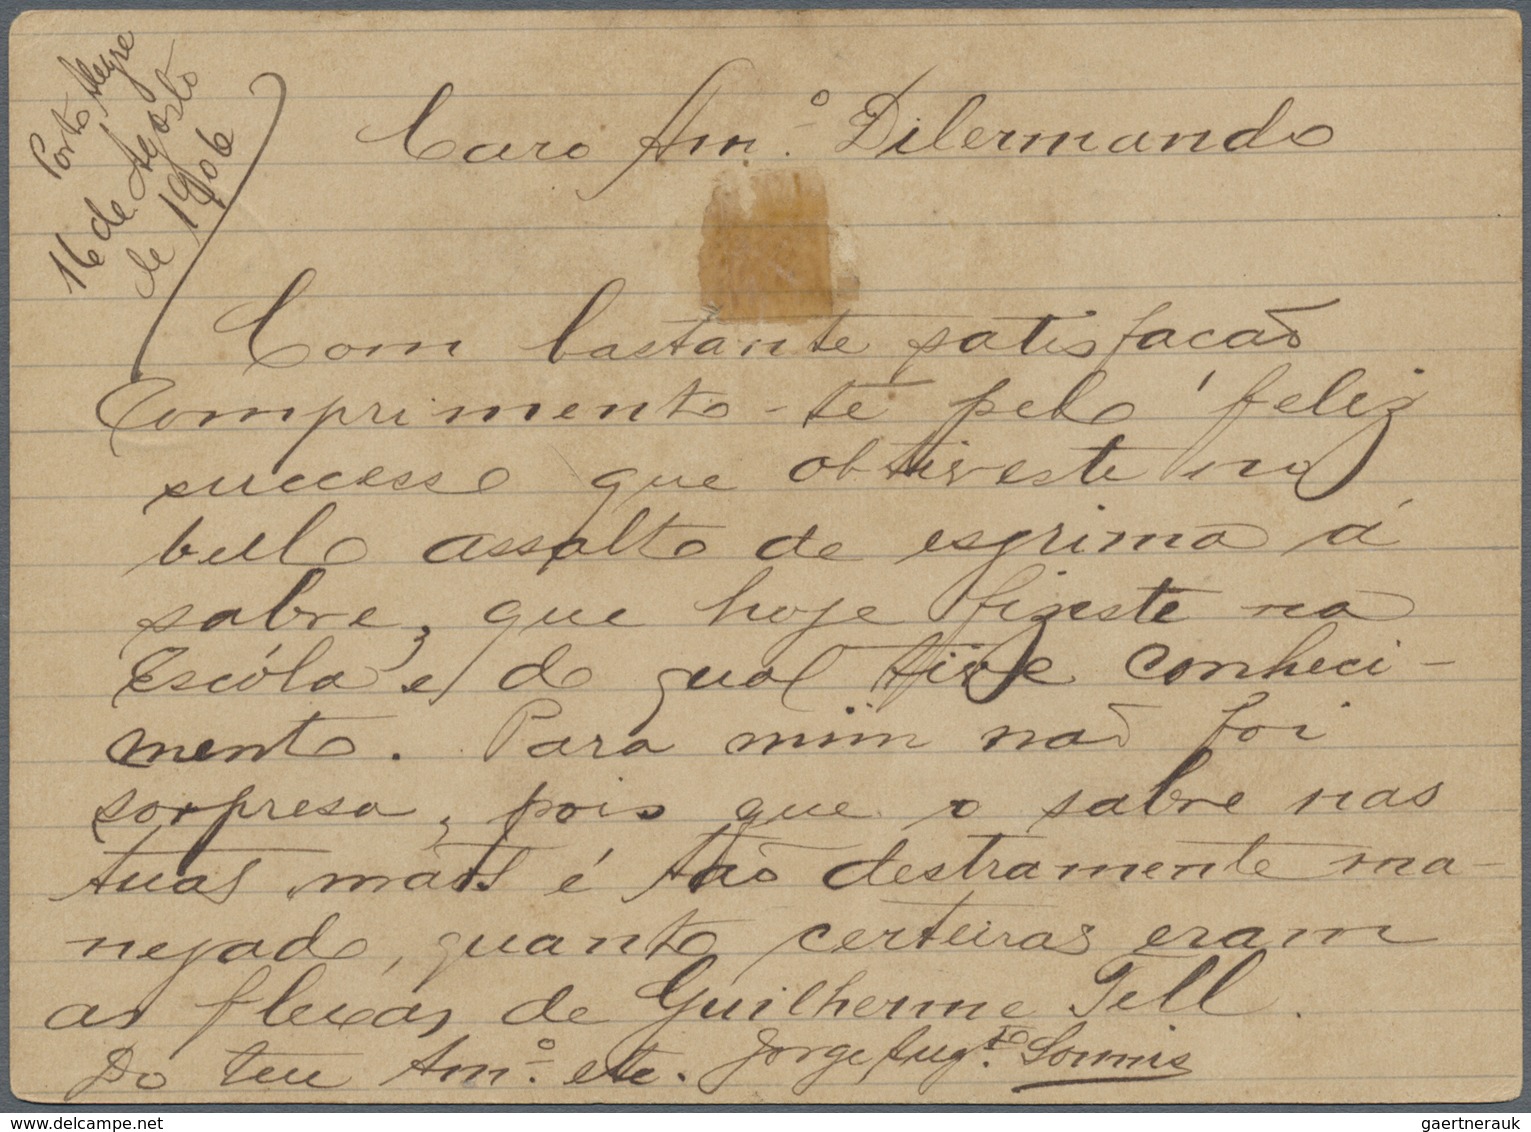 Porto Alegre
16 de Agosto
de 1906
Caro Am.º Dilermando
Com bastante satisfacaõ
Comprimento-te pelo feliz
successo que obtiveste no
bello assalto de esgrima á
sabre, que hoje fizeste na
Escóla e do qual tive conheci-
mento. Para mim naõ foi
sorpresa, pois que o sabre nas
tuas maõs é taõ destramente ma-
nejado, quanto certeiras eram
as flexas de Guilherme Tell.
Do teu Am.º etc. Jorge Aug.to
gaertnerauk